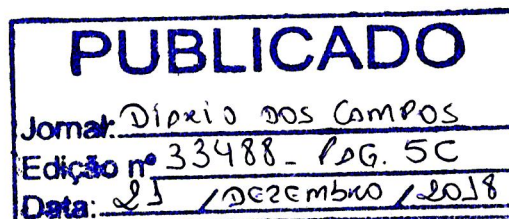 PUBLICADO
Jornal: Diário dos Campos
Edição nº 33488 - PÁG. 5C
Data: 21 / DEZEMBRO / 2018